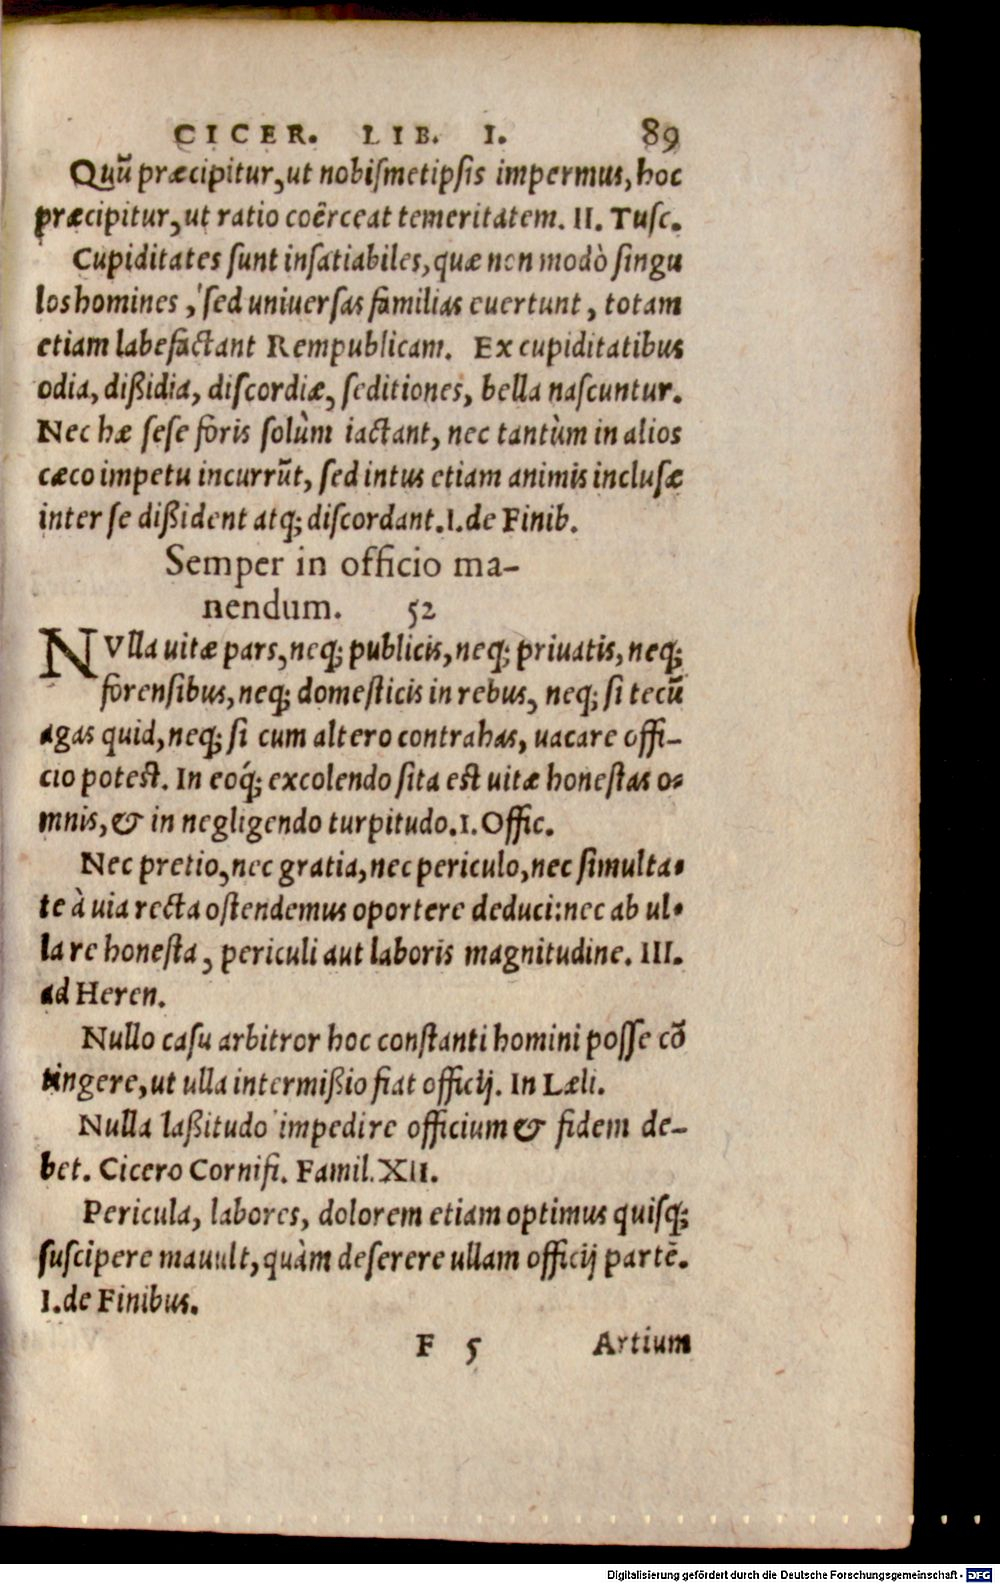 CICER. LIB. I. 89
Quū præcipitur, ut nobiſmetipſis impermus, hoc
præcipitur, ut ratio coërceat temeritatem. II. Tuſc.
Cupiditates ſunt inſatiabiles, quæ non modò ſingu
los homines, ſed uniuerſas familias euertunt, totam
etiam labefactant Rempublicam. Ex cupiditatibus
odia, dißidia, diſcordiæ, ſeditiones, bella naſcuntur.
Nec hæ ſeſe foris ſolùm iactant, nec tantùm in alios
cæco impetu incurrūt, ſed intus etiam animis incluſæ
inter ſe dißident atq; diſcordant. I. de Finib.
Semper in officio ma-
nendum. 52
NVlla uitæ pars, neq; publicis, neq; priuatis, neq;
forenſibus, neq; domeſticis in rebus, neq; ſi tecū
agas quid, neq; ſi cum altero contrahas, uacare offi-
cio poteſt. In eoq́; excolendo ſita eſt uitæ honeſtas o-
mnis, & in negligendo turpitudo. I. Offic.
Nec pretio, nec gratia, nec periculo, nec ſimulta-
te à uia recta oſtendemus oportere deduci: nec ab ul-
la re honeſta, periculi aut laboris magnitudine. III.
ad Heren.
Nullo caſu arbitror hoc conſtanti homini poſſe cō
tingere, ut ulla intermißio fiat officij. In Læli.
Nulla laßitudo impedire officium & fidem de-
bet. Cicero Cornifi. Famil. XII.
Pericula, labores, dolorem etiam optimus quiſq;
ſuſcipere mauult, quàm deſerere ullam officij partē.
I. de Finibus.
F 5 Artium
Digitalisierung gefördert durch die Deutsche Forschungsgemeinschaft - DFG